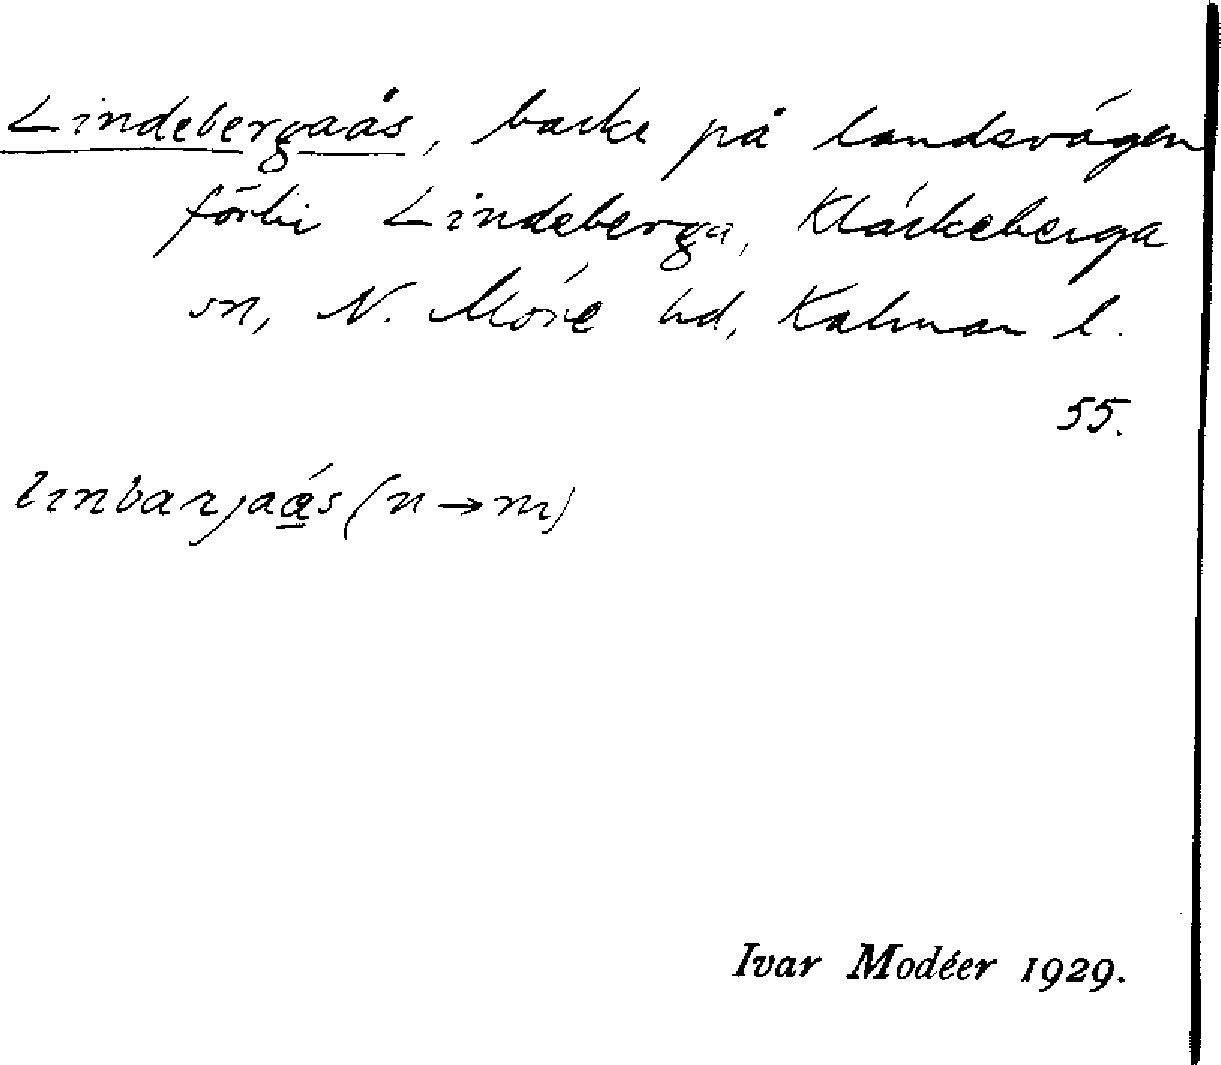 Lindebergaås, backe på landsvägen
förbi Lindeberga, Kläckeberga
sn, N. Möre hd, Kalmar l.
55.
linbarjaás (n → m)
Ivar Modéer 1929.